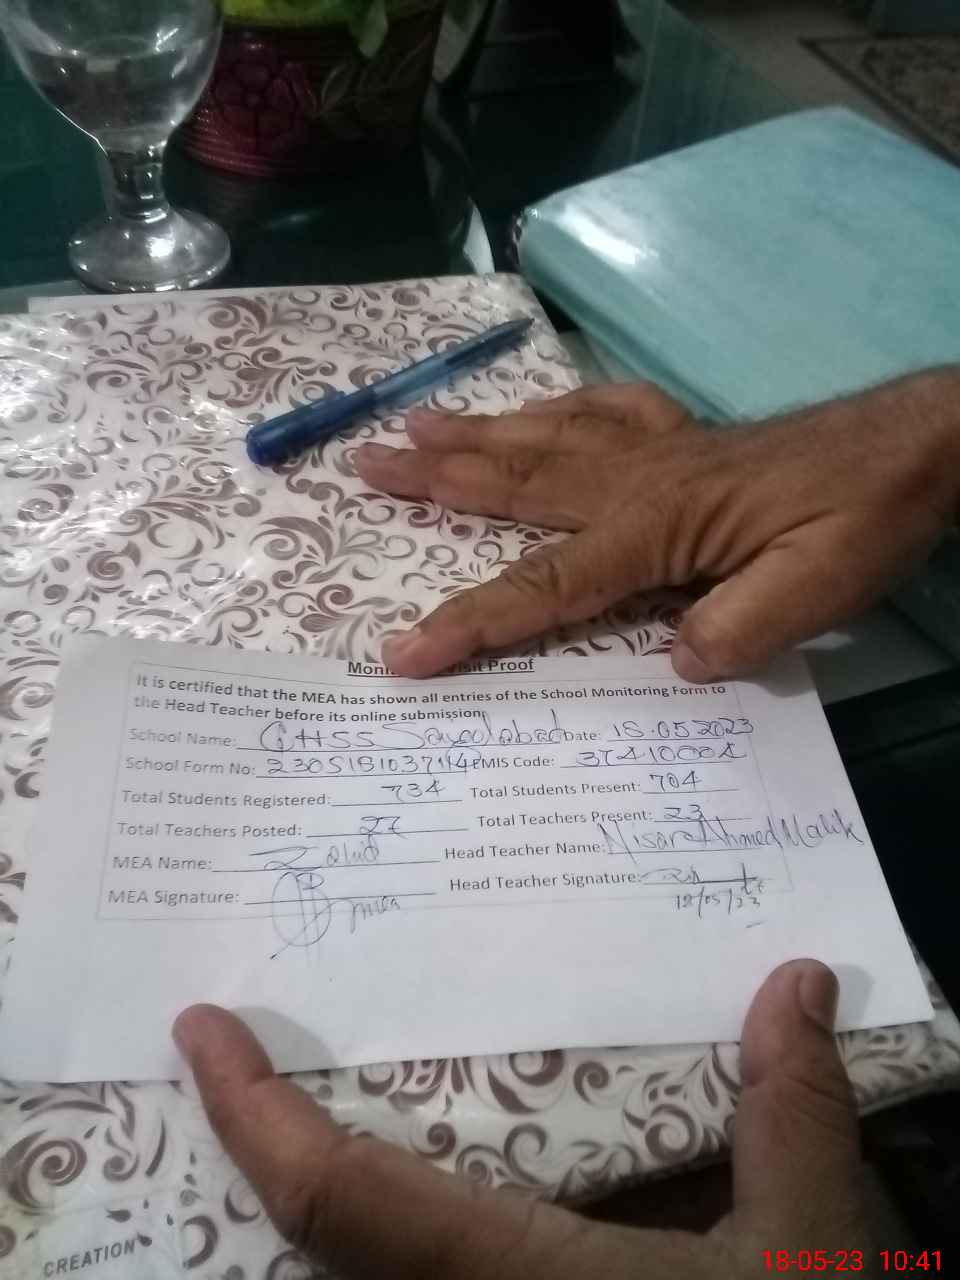 Moni Visit Proof
It is certified that the MEA has shown all entries of the School Monitoring Form to
the Head Teacher before its online submission
School Name: GHSS Sayedabad Date: 18.05.2023
School Form No: EMIS Code: 37410004
Total Students Registered: 734 Total Students Present: 704
Total Teachers Posted: 27 Total Teachers Present: 23
MEA Name: Zahid Head Teacher Name: Nisar Ahmed Malik
MEA Signature: mea Head Teacher Signature:
18/05/23
CREATION
18-05-23 10:41